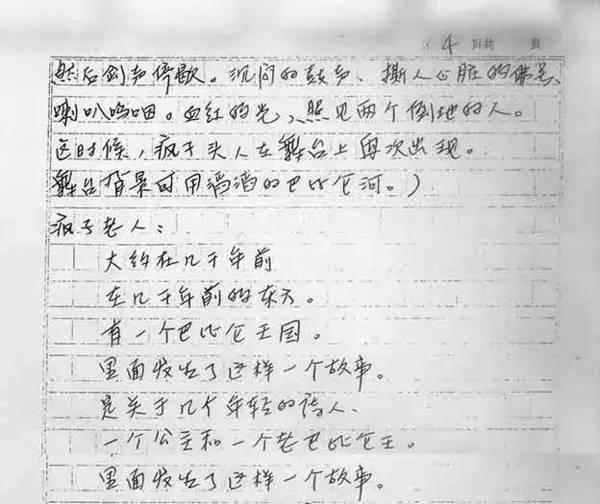 第 4 页共 页
然后剑声停歇。沉闷的鼓声、撕人心脏的佛号、
喇叭呜咽。血红的光、照见两个倒地的人。
这时候,疯子头人在舞台上再次出现。
舞台背景可用滔滔的巴比仑河。)
疯子老人:
大约在几千年前
在几千年前的东方。
有一个巴比仑王国。
里面发生了这样一个故事。
是关于几个年轻的诗人、
一个公主和一个老巴比仑王。
里面发生了这样一个故事。